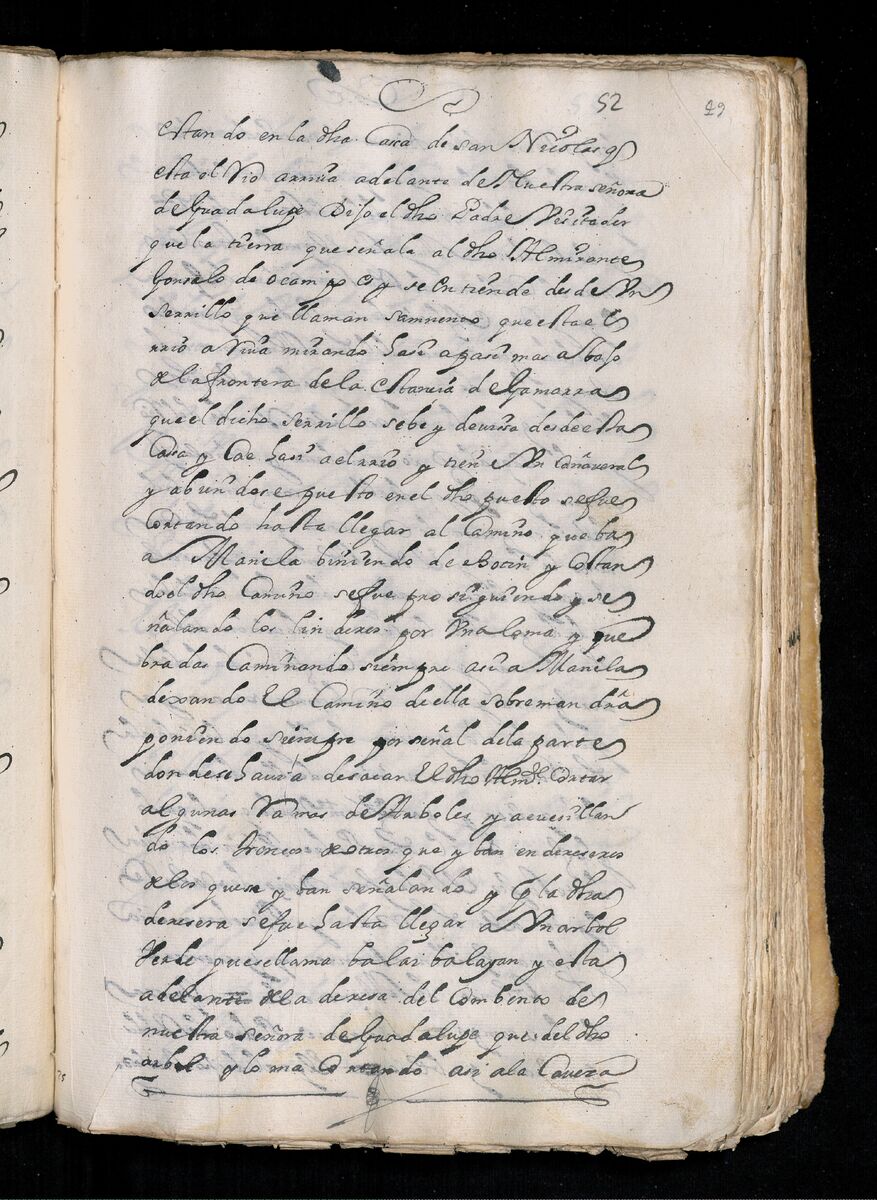 52 49
estando en la dha Casa de san Nicolas q
esta el Rio arriua adelante de Nuestra señora
de Guadalupe Dijo el dho Padre Vesitador
que la tierra que señala al dho Almirante
Gonsalo de ocampo es y se entiende desde Un
serrillo que llaman que esta el
rrio a Riua mirando hasi a pasi mas abajo
de la frontera de la estancia de Gamarra
que el dicho serrillo sebe y deuisa desde esta
Casa y Cae hasi a el rrio y tiene Un Cañaueral
y abiendose puesto en el dho puesto se fue
Cortando hasta llegar al Camino que ba
a Manila biniendo de Bocin y Cortan
do el dho Camino se fue prosiguiendo y se
ñalando los linderos por Una loma y que
bradas Caminando siempre asi a Manila
dexando el Camino de ella sobre man dra
poniendo siempre por señal de la parte
donde se hauia de sacar el dho Almte. Cortar
algunas Ramas de Arboles y acuchillan
do los troncos de otros que yban en dereseras
de los que se yban señalando y Con la dha
deresera se fue hasta llegar a Un arbol
Verde que se llama balai balayan y esta
adelante de la deresa del Combento de
nuestra señora de Guadalupe que del dho
arbol y loma Cortando asi a la Cauesa